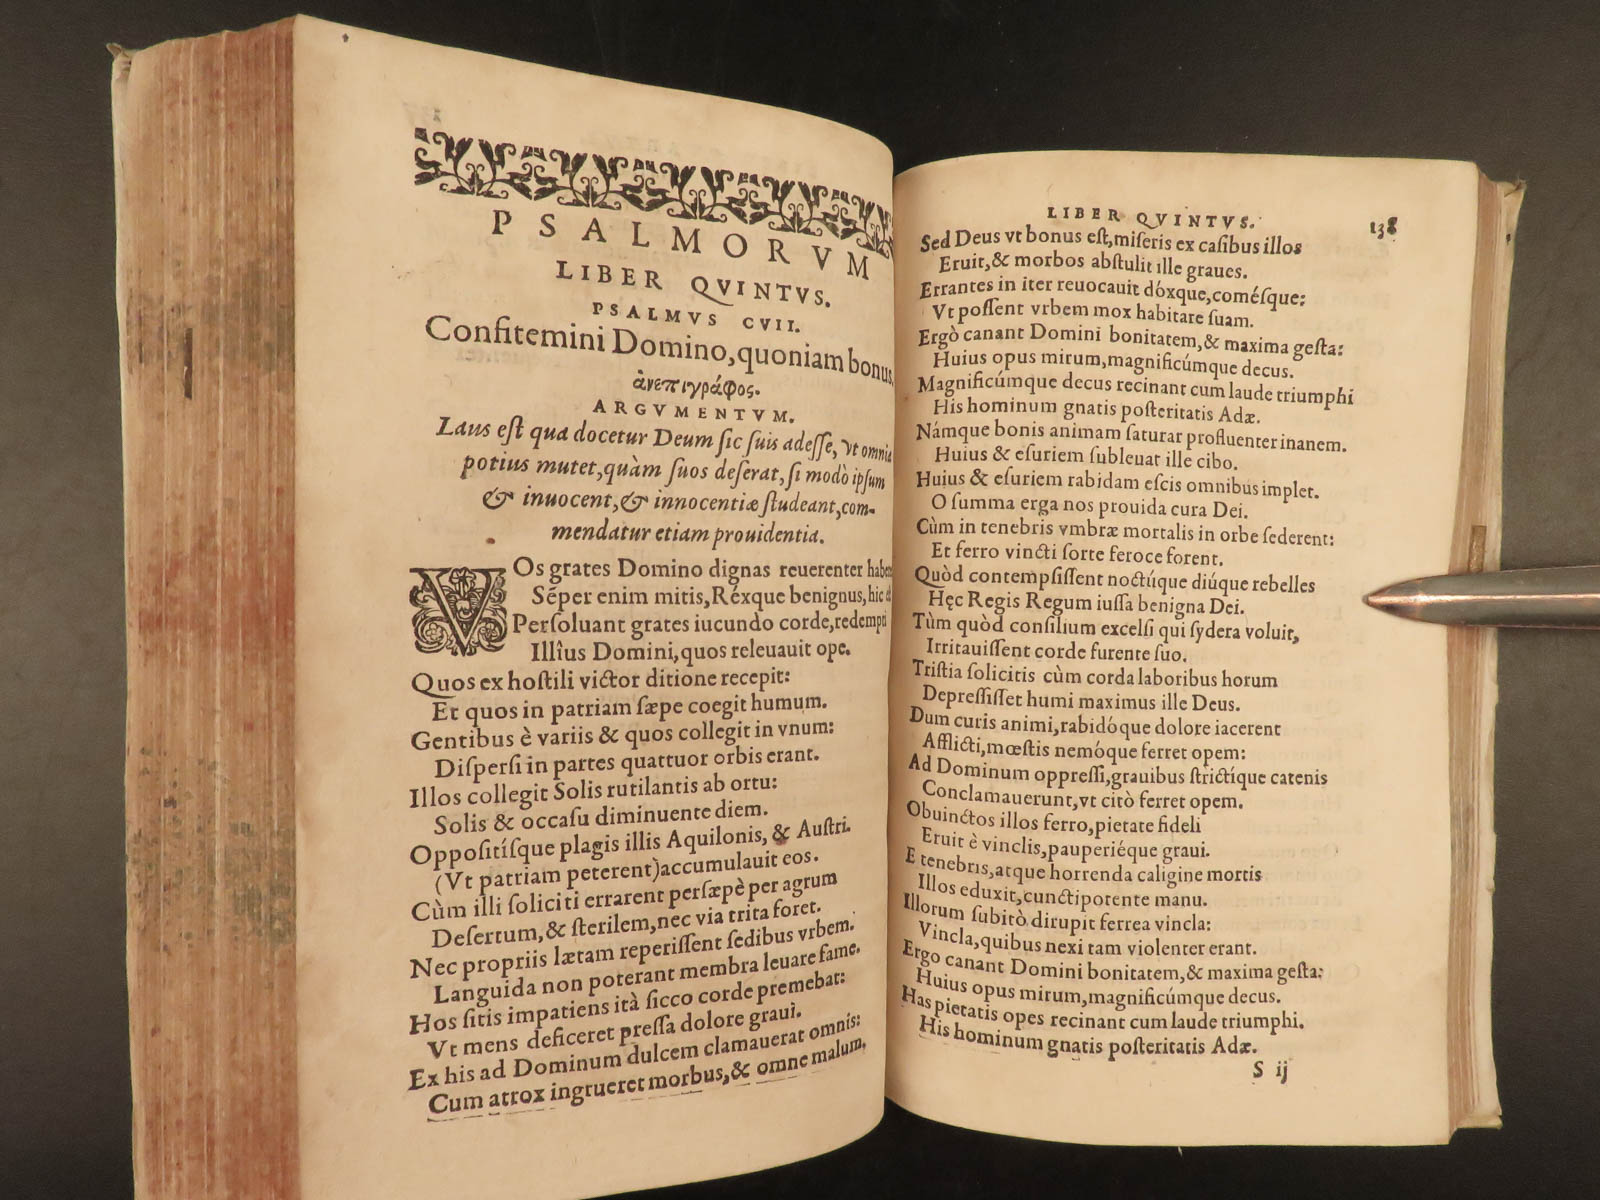 PSALMORVM
LIBER QVINTVS.
PSALMVS CVII.
Confitemini Domino, quoniam bonus,
ἀνεπιγράφος.
ARGVMENTVM.
Laus est qua docetur Deum sic suis adesse, vt omnia
potius mutet, quàm suos deserat, si modò ipsum
& inuocent, & innocentiæ studeant, com-
mendatur etiam prouidentia.
VOs grates Domino dignas reuerenter
Sēper enim mitis, Réxque benignus, hic
Persoluant grates iucundo corde, redempti
Illîus Domini, quos releuauit ope.
Quos ex hostili victor ditione recepit:
Et quos in patriam sæpe coegit humum.
Gentibus è variis & quos collegit in vnum:
Dispersi in partes quattuor orbis erant.
Illos collegit Solis rutilantis ab ortu:
Solis & occasu diminuente diem.
Oppositísque plagis illis Aquilonis, & Austri.
(Vt patriam peterent) accumulauit eos.
Cùm illi soliciti errarent persæpè per agrum
Desertum, & sterilem, nec via trita foret.
Nec propriis lætam reperissent sedibus vrbem.
Languida non poterant membra leuare fame.
Hos sitis impatiens ità sicco corde premebat:
Vt mens deficeret pressa dolore graui.
Ex his ad Dominum dulcem clamauerat omnis:
Cum atrox ingrueret morbus, & omne malum,
LIBER QVINTVS. 138
Sed Deus vt bonus est, miseris ex casibus illos
Eruit, & morbos abstulit ille graues.
Errantes in iter reuocauit dóxque, comésque:
Vt possent vrbem mox habitare suam.
Ergò canant Domini bonitatem, & maxima gesta:
Huius opus mirum, magnificúmque decus.
Magnificúmque decus recinant cum laude triumphi
His hominum gnatis posteritatis Adæ.
Námque bonis animam saturar profluenter inanem.
Huius & esuriem subleuat ille cibo.
Huius & esuriem rabidam escis omnibus implet.
O summa erga nos prouida cura Dei.
Cùm in tenebris vmbræ mortalis in orbe sederent:
Et ferro vincti sorte feroce forent.
Quòd contempsissent noctúque diúque rebelles
Hęc Regis Regum iussa benigna Dei.
Tùm quòd consilium excelsi qui sydera voluit,
Irritauissent corde furente suo.
Tristia solicitis cùm corda laboribus horum
Depressisset humi maximus ille Deus.
Dum curis animi, rabidóque dolore iacerent
Afflicti, mœstis nemóque ferret opem:
Ad Dominum oppressi, grauibus strictíque catenis
Conclamauerunt, vt citò ferret opem.
Obuinctos illos ferro, pietate fideli
Eruit è vinclis, pauperiéque graui.
E tenebris, atque horrenda caligine mortis
Illos eduxit, cunctipotente manu.
Illorum subitò dirupit ferrea vincla:
Vincla, quibus nexi tam violenter erant.
Ergo canant Domini bonitatem, & maxima gesta:
Huius opus mirum, magnificúmque decus.
Has pietatis opes recinant cum laude triumphi.
His hominum gnatis posteritatis Adæ.
S ij